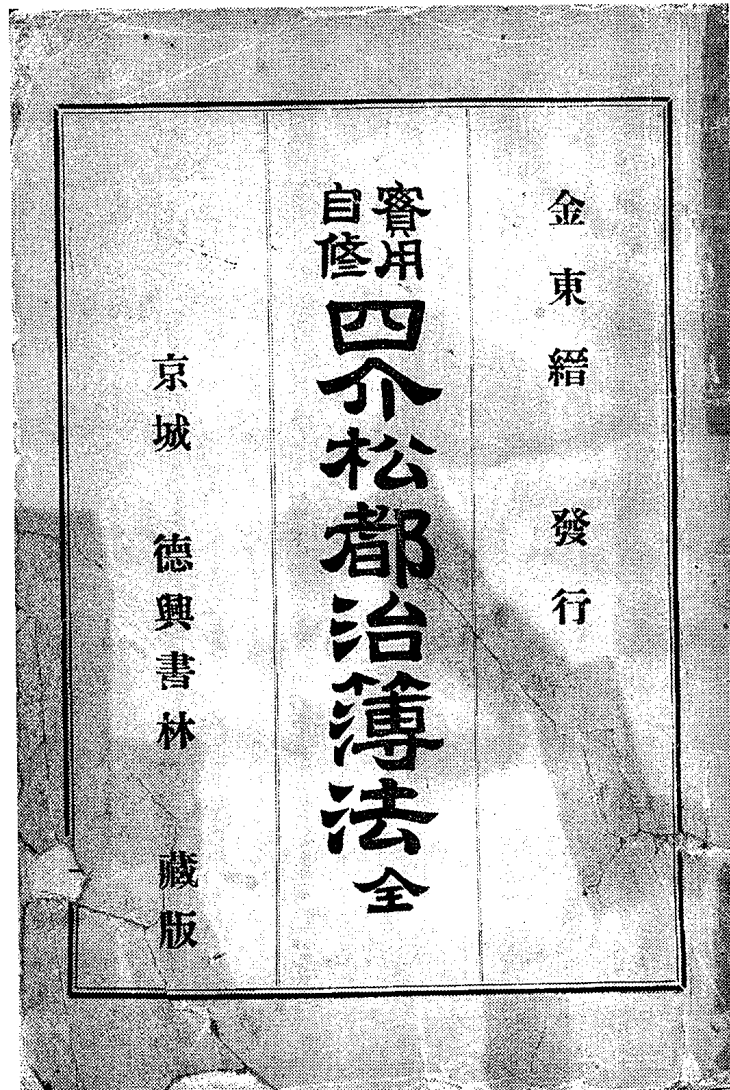 金東縉 發行
實用自修 四介松都治簿法 全
京城 德興書林 藏版